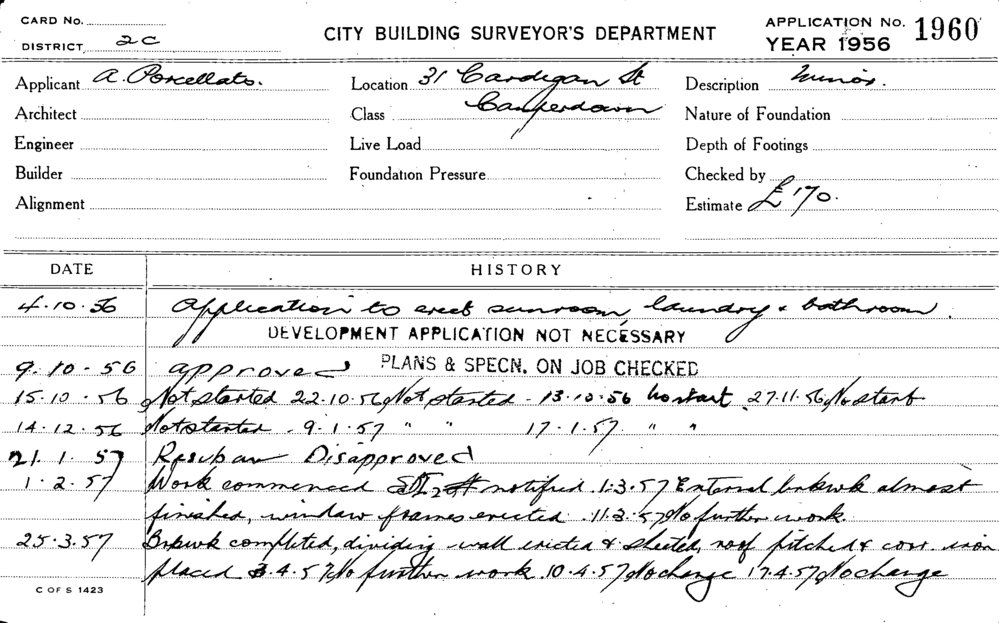 CARD No.
DISTRICT 2C
CITY BUILDING SURVEYOR'S DEPARTMENT
APPLICATION No. 1960
YEAR 1956
Applicant A. Porcellato.
Location 31 Cardigan St
Description Minor.
Architect
Class Camperdown
Nature of Foundation
Engineer
Live Load
Depth of Footings
Builder
Foundation Pressure
Checked by
Alignment
Estimate £170.
DATE HISTORY
4.10.56 Application to erect sunroom laundry & bathroom.
DEVELOPMENT APPLICATION NOT NECESSARY
9.10.56 approved PLANS & SPECN. ON JOB CHECKED
15.10.56 Not started 22.10.56 Not started - 13.10.56 No start 27.11.56 No start
14.12.56 Not started - 9.1.57 " " 17.1.57. " "
21.1.57 Disapproved
1.2.57 Work commenced notified. 1.3.57 External brkwk almost
finished, window frames erected. 11.3.57 No further work.
25.3.57 Brkwk completed, dividing wall erected & sheeted, roof pitched & corr. iron
placed 3.4.57 No further work 10.4.57 No change 17.4.57 No change
C OF S 1423